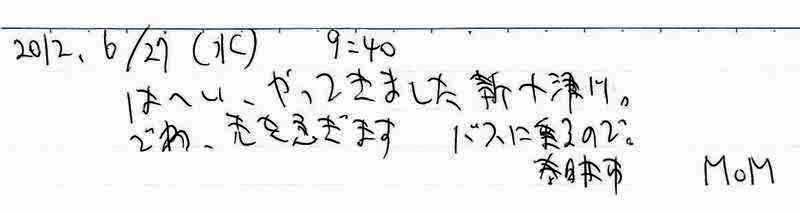 2012. 6/27 (水) 9:40
はへい、やってきました新十津川。
でわ、先を急ぎます バスに乗るので。
春日井市 MoM